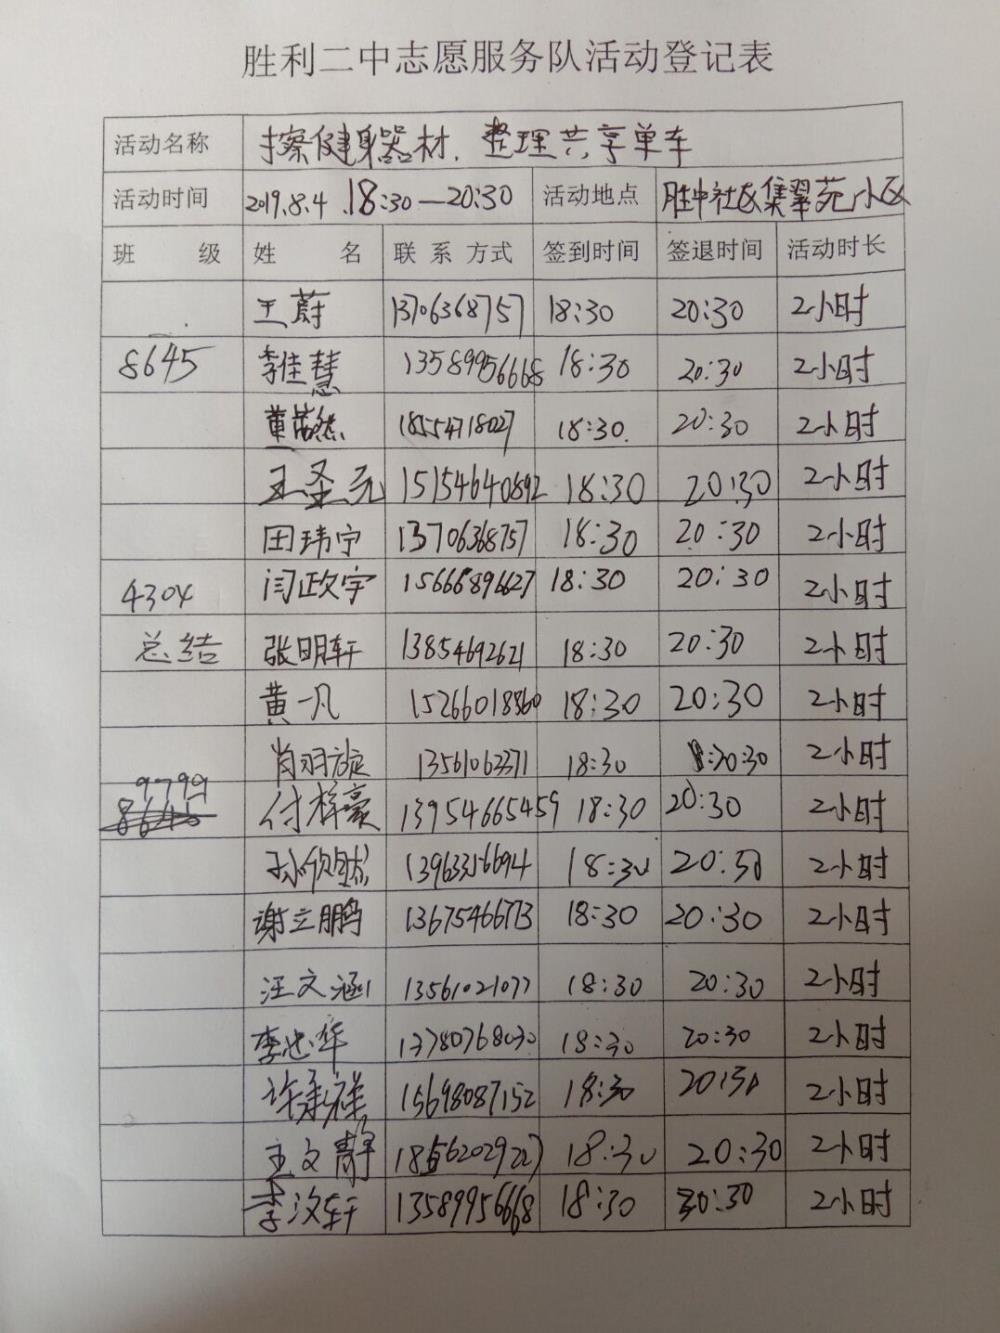 胜利二中志愿服务队活动登记表
活动名称 擦健身器材、整理共享单车
活动时间 2019.8.4 18:30—20:30 活动地点 胜中社区集翠苑小区
班 级 姓 名 联 系 方式 签到时间 签退时间 活动时长
王蔚 13706368757 18:30 20:30 2小时
8645 李佳慧 13589956668 18:30 20:30 2小时
董茹然 18554718027 18:30 20:30 2小时
王圣元 15154640892 18:30 20:30 2小时
田玮宁 13706368757 18:30 20:30 2小时
4304 闫政宇 15666896627 18:30 20:30 2小时
总结 张明轩 13854692621 18:30 20:30 2小时
黄一凡 15266018860 18:30 20:30 2小时
肖羽旋 13561062371 18:30 20:30 2小时
9799 付梓豪 13954665459 18:30 20:30 2小时
8645
孙欣然 18:30 20:30 2小时
谢立鹏 13675466773 18:30 20:30 2小时
汪文涵 13561021077 18:30 20:30 2小时
李忠华 13780768030 18:30 20:30 2小时
许承禄 15698087152 18:30 20:30 2小时
王文静 18:30 20:30 2小时
李汶轩 13589956668 18:30 20:30 2小时